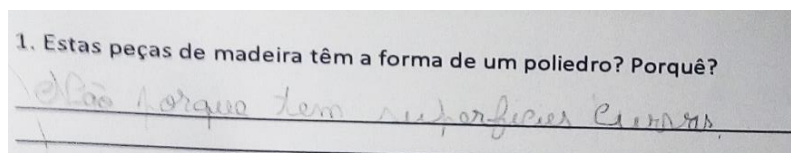 1. Estas peças de madeira têm a forma de um poliedro? Porquê?
Não porque tem superficies curvas.